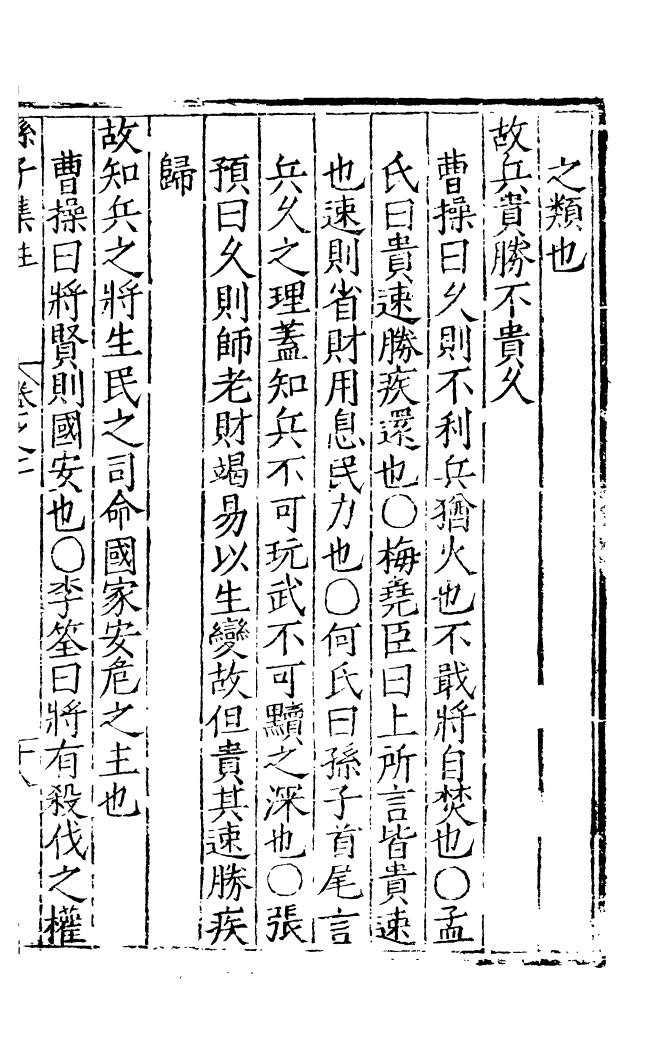 之類也
故兵貴勝不貴久
曹操曰久則不利兵猶火也不戢將自焚也○孟
氏曰貴速勝疾還也○梅堯臣曰上所言皆貴速
也速則省財用息民力也○何氏曰孫子首尾言
兵久之理蓋知兵不可玩武不可黷之深也○張
預曰久則師老財竭易以生變故但貴其速勝疾
歸
故知兵之將生民之司命國家安危之主也
曹操曰將賢則國安也○李筌曰將有殺伐之權
孫子集註 卷之二 十八